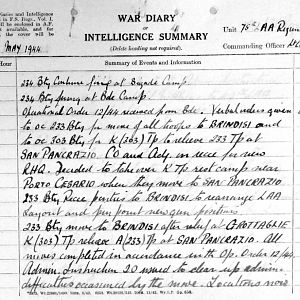 Notes and Intelligence
in F.S. Regs., Vol. I.
WAR DIARY
or
INTELLIGENCE SUMMARY
(Delete heading not required).
Unit 75th AA Regim
Commanding Officer
MAY 1944
Hour
Summary of Events and Information
234 Bty continue firing at Brigade Camp.
234 Bty firing at Bde Camp.
Operational Order 12/44 received from Bde. Verbal orders given
to OC 233 Bty for move of all troops to BRINDISI and
to OC 303 Bty for K (303) TP to relieve 233 TP at
SAN PANCRAZIO. CO and Adj. in recce for new
RHQ. Decided to take over K TP rest camp near
PORTO CESARIO when they move to SAN PANCRAZIO
233 Bty Recce parties to BRINDISI to rearrange LAA
layout and pin point new gun positions
233 Bty move to BRINDISI after relief at GROTTAGLIE
K (303) TP relieve A/233 TP at SAN PANCRAZIO. All
moves completed in accordance with Op. Order 12/44
Admin. Instruction 20 issued to clear up admin.
difficulties occasioned by the move. Locations now